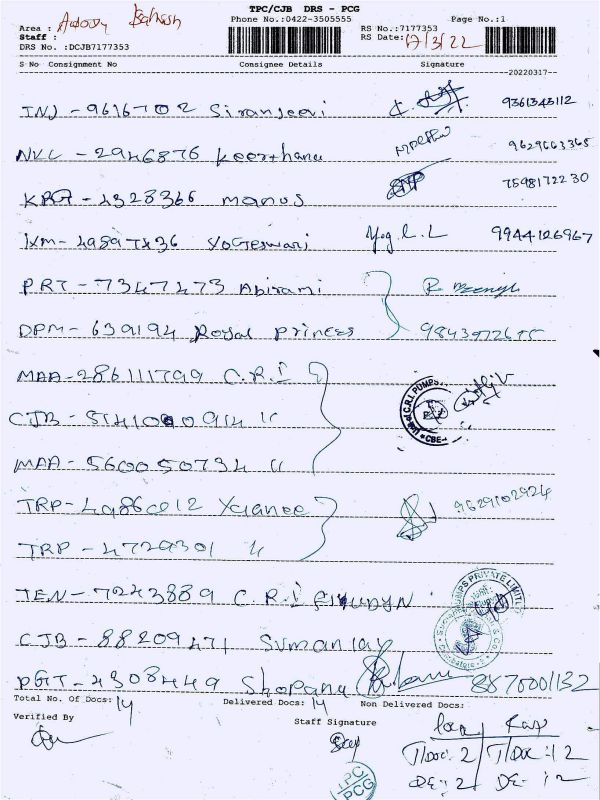 TPC/CJB DRS - PCG
Area : Balnash Phone No.:0422-3505555 Page No.:1
Staff : RS No.:7177353
DRS No. :DCJB7177353 RS Date: 17/3/22
S No Consignment No Consignee Details Signature
20220317
INJ - 9616702 Siranjeevi 9361343112
NKL - 2946876 Keerthana 9629663365
KRG - 4328366 manos 7598172230
IXM - 49897436 Yogeswari Yog L. L 9944126967
PRT - 7347473 Abirami R.
DPM - 639194 Royal Princess 9843972675
MAA - 286111799 C.R.I
CJB - 514100914 "
MAA - 560050734 "
TRP - 4986012 Yaanee 9629102924
TRP - 4729301 "
TEN - 7243889 C.R.I
CJB - 88209471 Suman
PGT - 4308449 Shopana 8870001132
Total No. Of Docs: 14 Delivered Docs: 14 Non Delivered Docs:
Verified By Staff Signature
T/Doc: 2 T/Doc: 12
DE: 2 DE: 12
TPC
PCG